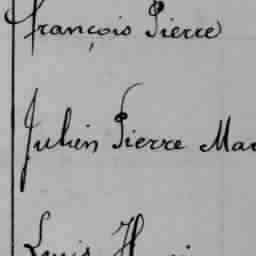 François Pierre
Julien Pierre Mar
Louis H